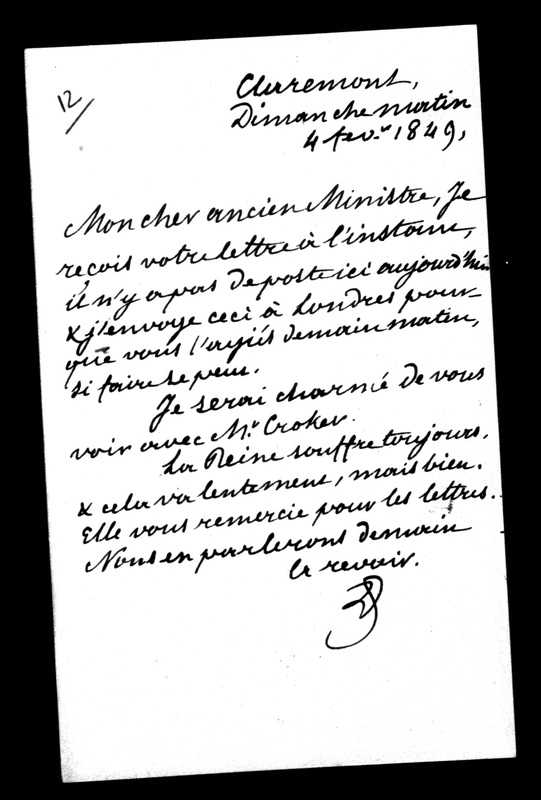 12/
Claremont,
Dimanche matin
4 fev.er 1849,
Mon cher ancien Ministre, Je
reçois votre lettre à l'instant,
il n'y a pas de poste ici aujourd'hui
& j'envoye ceci à Londres pour
que vous l'ayiés demain matin,
si faire se peut.
Je serai charmé de vous
voir avec Mr. Croker.
La Reine souffre toujours,
& cela va lentement, mais bien.
Elle vous remercie pour les lettres.
Nous en parlerons demain
a revoir.